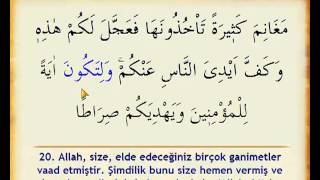 مَغَانِمَ كَث۪يرَةً تَأْخُذُونَهَا فَعَجَّلَ لَكُمْ هٰذِه۪
وَكَفَّ اَيْدِىَ النَّاسِ عَنْكُمْۚ وَلِتَكُونَ اٰيَةً
لِلْمُؤْمِن۪ينَ وَيَهْدِيَكُمْ صِرَاطًا
20. Allah, size, elde edeceğiniz birçok ganimetler
vaad etmiştir. Şimdilik bunu size hemen vermiş ve